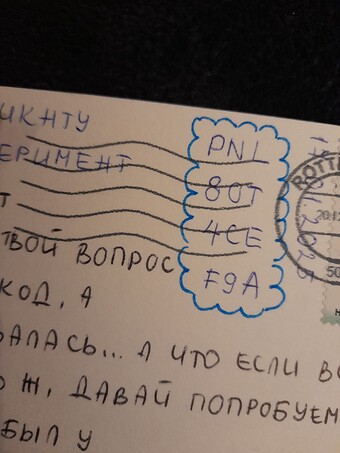 ИКНТУ
ЕРИМЕНТ
Т
ТВОЙ ВОПРОС
КОД, А
ВАЛАСЬ... А ЧТО ЕСЛИ
Ж, ДАВАЙ ПОПРОБУЕМ
БЫЛ У
PNL
80T
4CE
F9A
ROTT